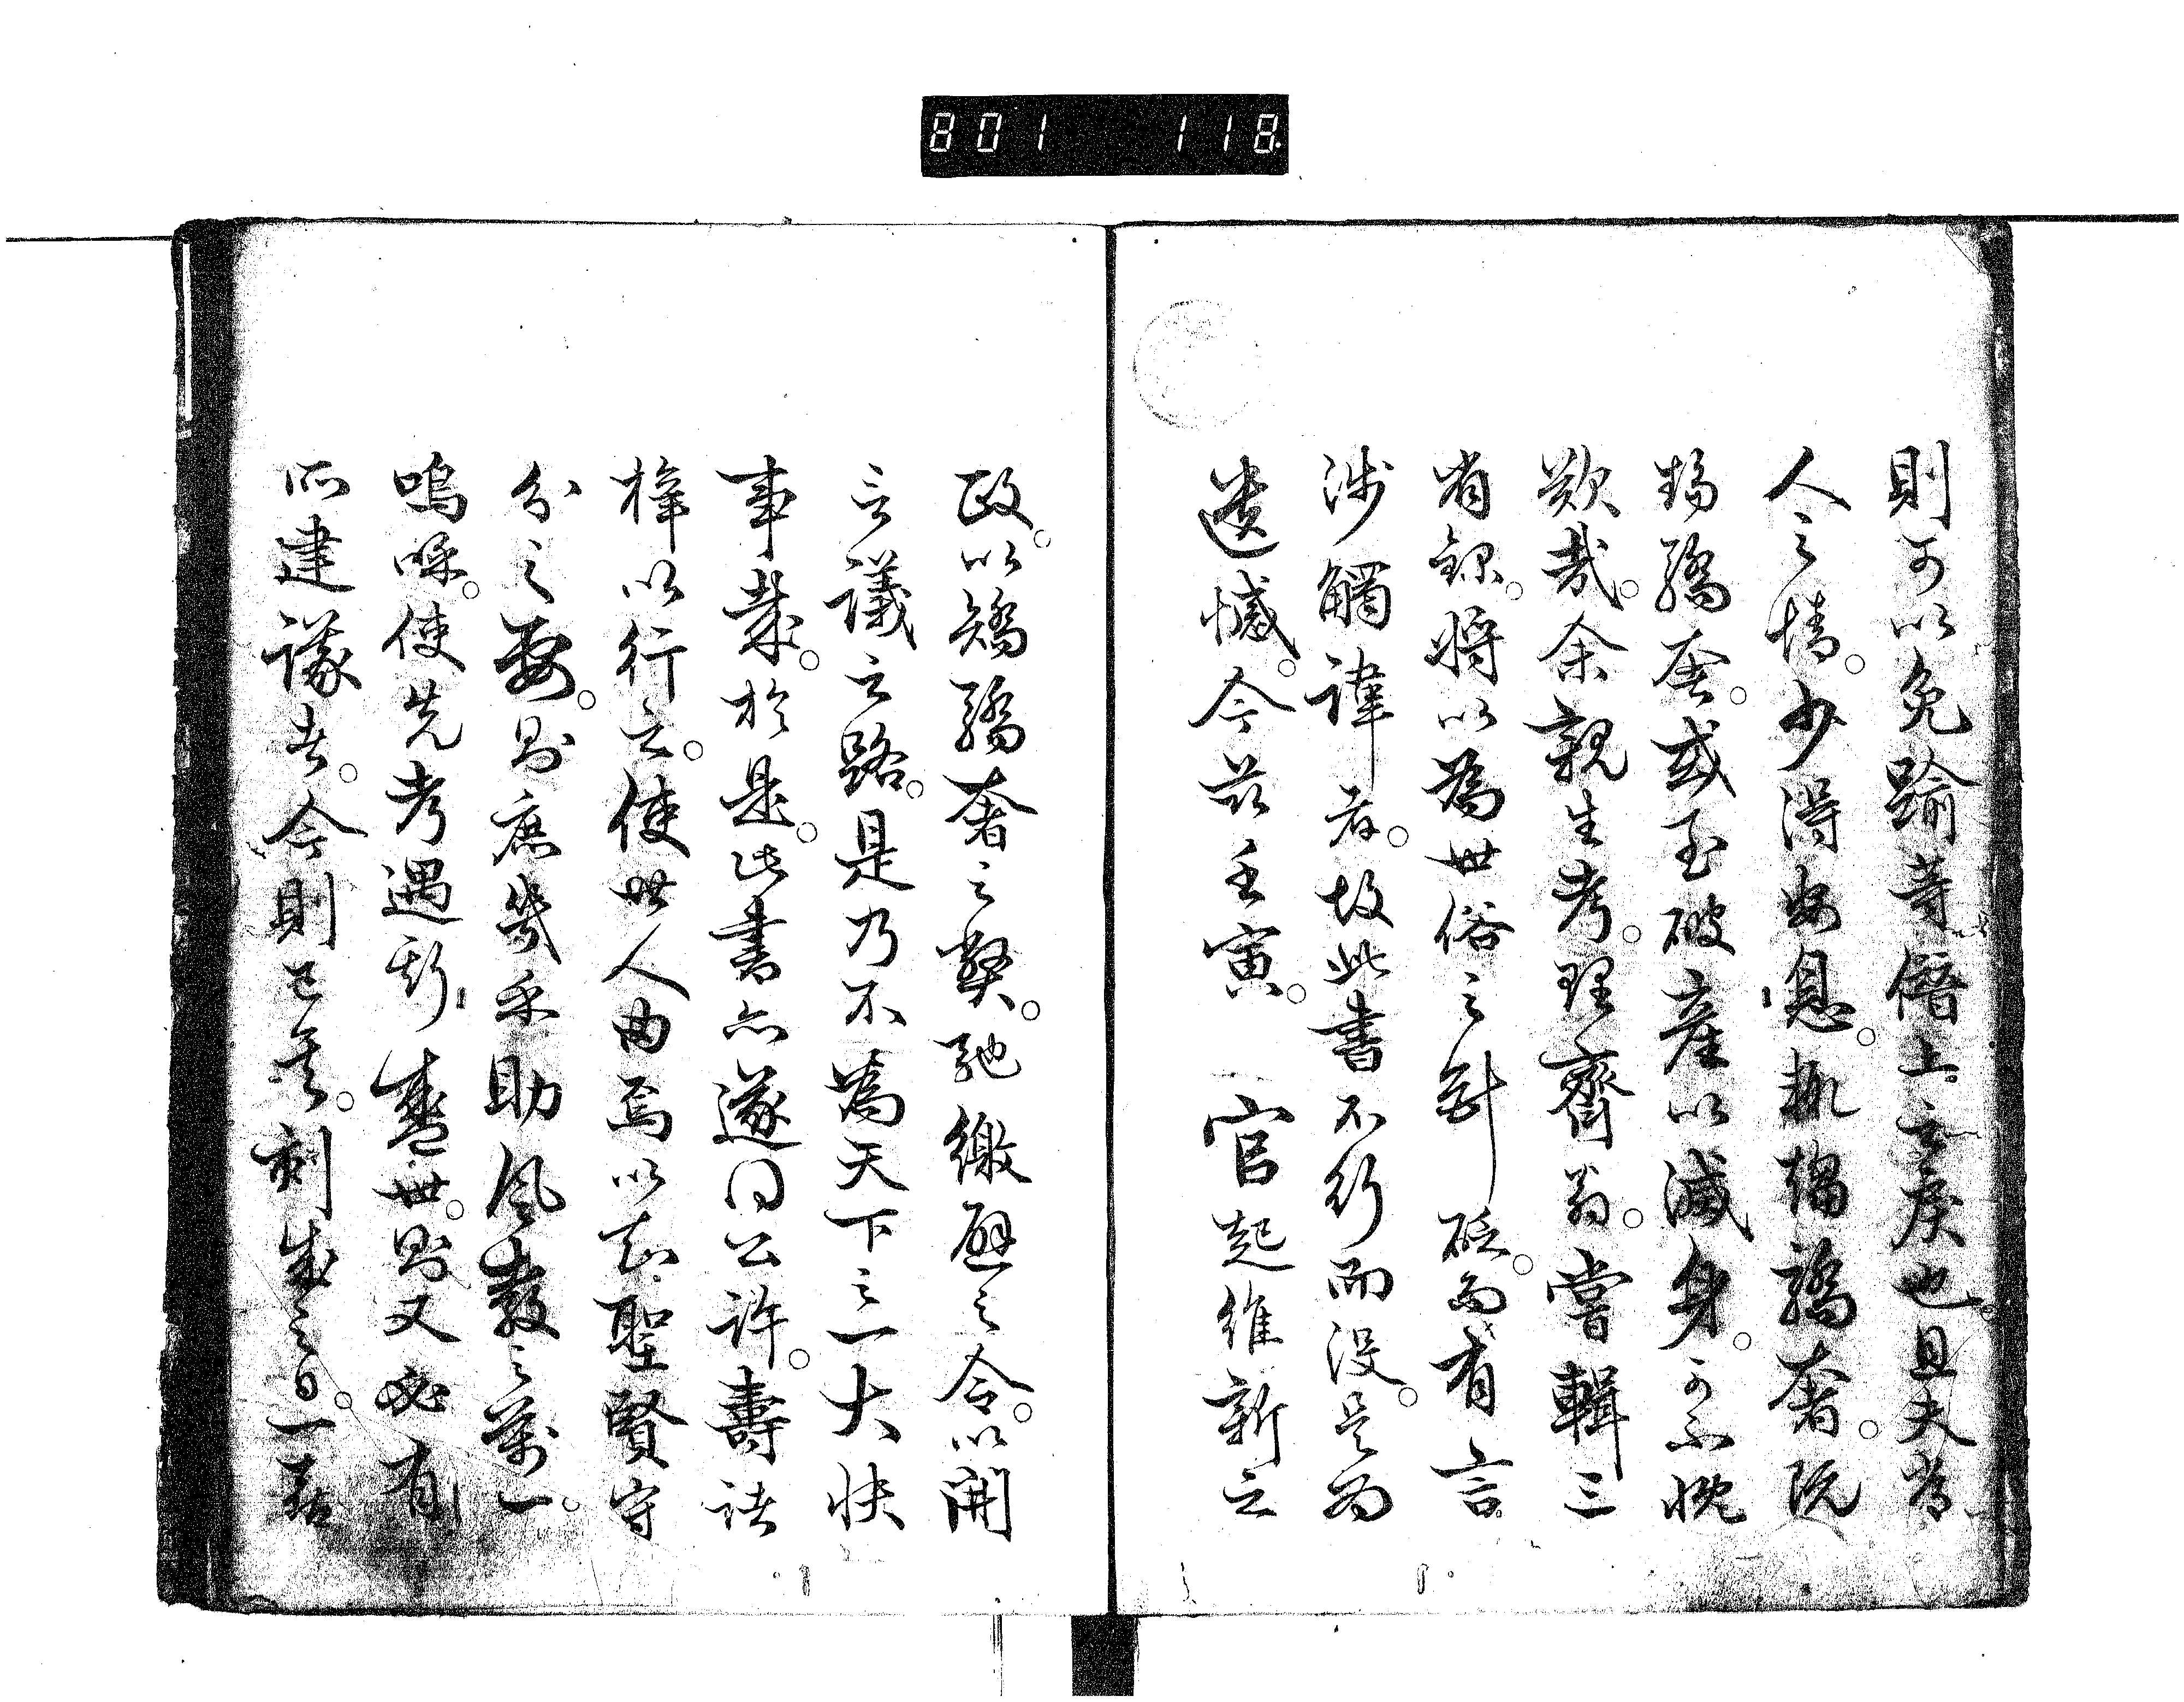 801 118
則可以免踰等僭上之戾也且夫常
人之情。少得安息。輒
驕奢。或至破産以滅身。可不慨
歎哉。余親生考。理齋翁。嘗輯三
省録。将以為世俗之針砭。而有言
涉觸諱者。故此書不行而没。是為
遺憾。今茲壬寅。 官起維新之
政。以矯驕奢之弊。弛緻之令。以開
言議之路。是乃不為天下之一大快
事哉。於是。此書亦遂同公許。壽諸
梓以行之。使世人由焉以知聖賢守
分之要。則庶幾乎助風教之萬一。
嗚呼。使先考遇斯盛世。則又必有
所建議者。今則已矣。刻成之日。一